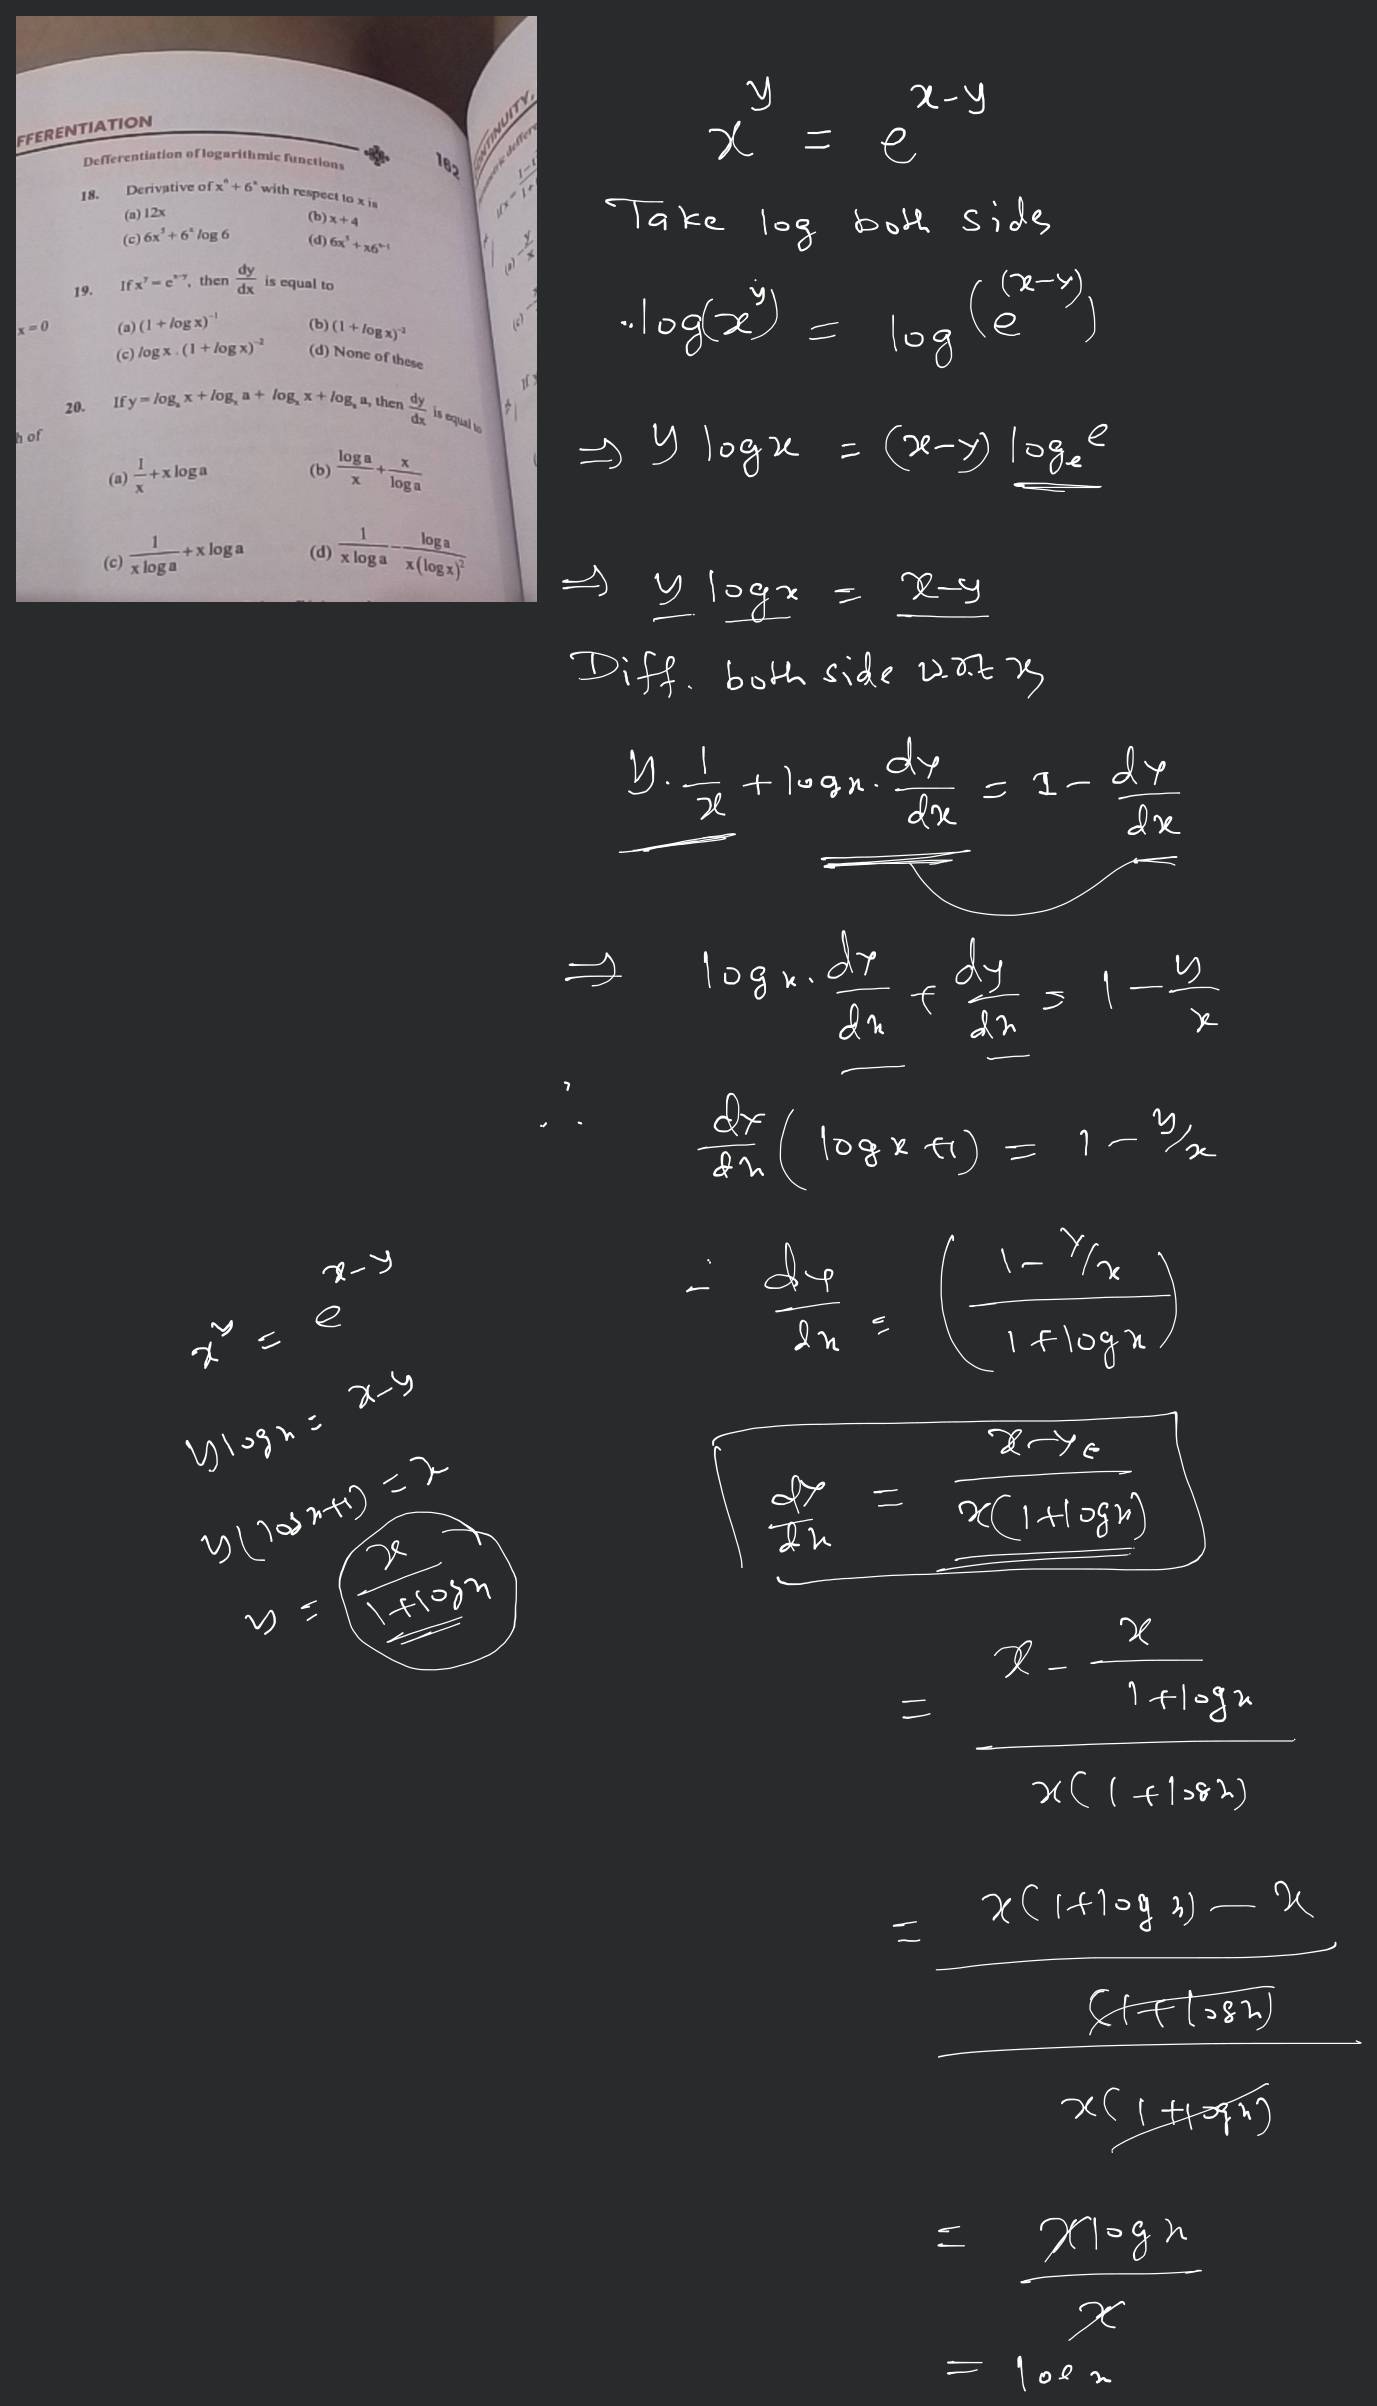 FFERENTIATION
162
Defferentiation of logarithmic functions
18. Derivative of x⁶ + 6ˣ with respect to x is
(a) 12x (b) x + 4
(c) 6x⁵ + 6ˣ log 6 (d) 6x⁵ + x6ˣ⁻¹
19. If xʸ = eˣ⁻ʸ, then dy/dx is equal to
x = 0
(a) (1 + log x)⁻¹ (b) (1 + log x)⁻²
(c) log x . (1 + log x)⁻² (d) None of these
20. If y = logₐ x + logₓ a + logₓ x + logₐ a, then dy/dx is equal to
h of
(a) 1/x + x log a (b) log a/x + x/log a
(c) 1/(x log a) + x log a (d) 1/(x log a) − log a/(x(log x)²)
ONTINUITY,
xʸ = eˣ⁻ʸ
Take log both side
log(xʸ) = log(e⁽ˣ⁻ʸ⁾)
⇒ y log x = (x-y) logₑe
⇒ y log x = x-y
Diff. both side w.r.t x
y. 1/x + log x. dy/dx = 1 - dy/dx
⇒ log x. dy/dx + dy/dx = 1 - y/x
∴ dy/dx (log x +1) = 1 - y/x
∴ dy/dx = ((1 - y/x)/(1+log x))
dy/dx = (x-y)/(x(1+log x))
= (x - x/(1+log x))/(x(1+log x))
= ((x(1+log x) - x)/(1+log x))/(x(1+log x))
= x log x/x
= log x
xʸ = eˣ⁻ʸ
y log x = x-y
y(log x+1) = x
y = x/(1+log x)